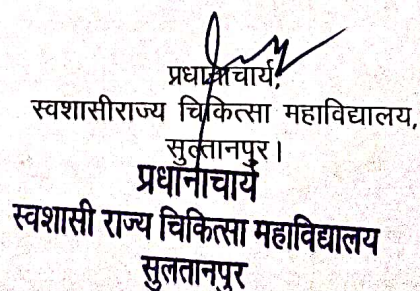 प्रधानाचार्य,
स्वशासीराज्य चिकित्सा महाविद्यालय,
सुल्तानपुर।
प्रधानाचार्य
स्वशासी राज्य चिकित्सा महाविद्यालय
सुलतानपुर